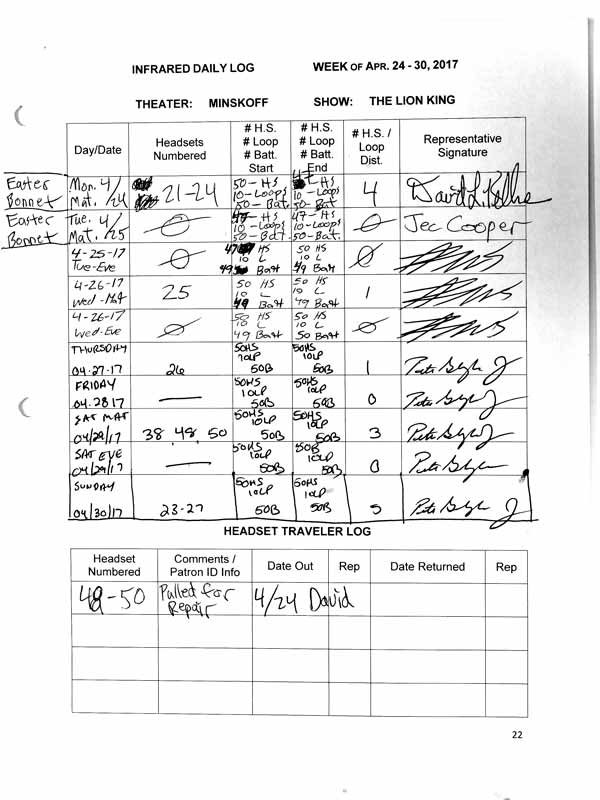 INFRARED DAILY LOG WEEK OF APR. 24 - 30, 2017
THEATER: MINSKOFF SHOW: THE LION KING
Day/Date
Headsets
Numbered
# H.S.
# Loop
# Batt.
Start
# H.S.
# Loop
# Batt.
End
# H.S. /
Loop
Dist.
Representative
Signature
Easter
Bonnet
Mon. 4/
Mat. /24
21-24
50 - HS
10 - Loops
50 - Bat.
HS
10 - Loops
50 - Bat
4
Easter
Bonnet
Tue. 4/
Mat. /25
0
47 - HS
10 - Loops
50 - Bat.
47 - HS
10 - Loops
50 - Bat.
0
Jec Cooper
4-25-17
Tue-Eve
0
47 HS
10 L
49 Batt
50 HS
10 L
49 Batt
0
4-26-17
Wed-Mat
25
50 HS
10 L
49 Batt
50 HS
10 L
49 Batt
1
4-26-17
Wed-Eve
0
50 HS
10 L
49 Batt
50 HS
10 L
50 Batt
0
THURSDAY
04.27.17
26
50HS
10LP
50B
50HS
10LP
50B
1
FRIDAY
04.28.17
—
50HS
10LP
50B
50HS
10LP
50B
0
SAT MAT
04/29/17
38, 48, 50
50HS
10LP
50B
50HS
10LP
50B
3
SAT EVE
04/29/17
—
50HS
10LP
50B
50B
10LP
50B
0
SUNDAY
04/30/17
23-27
50HS
10LP
50B
50HS
10LP
50B
5
HEADSET TRAVELER LOG
Headset
Numbered
Comments /
Patron ID Info
Date Out
Rep
Date Returned
Rep
48-50
Pulled for
Repair
4/24
David
22